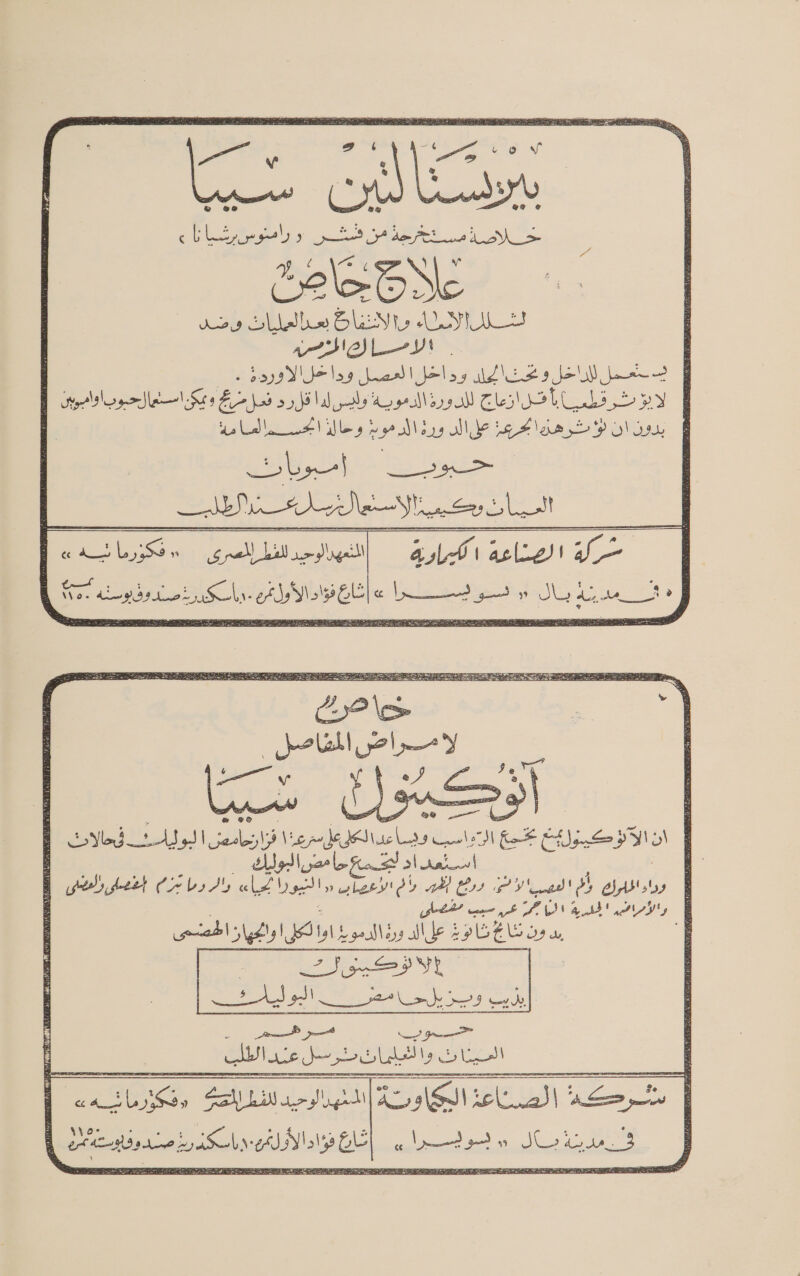 بيرستالتين سيبا
خلاصة مستخرجة من قشر « رامنوس برشيانا »
علاج خاص
لشلل الامعاء والانتفاخ بعد العمليات وضد
الامساك المزمن
يستعمل للداخل وتحت الجلد وداخل العضل وداخل الاوردة .
لا يؤثر قطعيا بأقل ازعاج للدورة الدموية وليس لها اقل رد فعل مزعج ويمكن استعمال حبوب وامبوبين
بدون ان تؤثر هذه الجرعة على الدورة الدموية وحالة الجسم العامة
حبوب امبوبات
العينات وكيفية الاستعمال ترسل عند الطلب
شركة الصناعة الكيماوية
في مدينة بال « سويسرا »
المتعهد الوحيد للقطر المصرى « فكورما نيه »
شارع فؤاد الأول نمرة ١٠ باسكندرية صندوق بوسته ١١٥٠
خاص
لامراض المفاصل
آتوكينول سيبا
ان الآتوكينول يمنع تجمع الرواسب ويساعد الكلى على سرعة افراز حامض البوليك في حالات
استعداد لتجمع حامض البوليك
وداء الملوك وألم العصب الأنسى ووجع الظهر وألم الأعصاب « النيورالجيا » والروماتيزم المفصلى والعضلى
والأمراض الجلدية الناجمة عن سبب مفصلى
بدون نتائج ثانوية على الدورة الدموية او الكلى او الجهاز الهضمى
الاتوكينول
يذيب ويزيل حامض البوليك
حبوب مرهم
العينات والتعليمات ترسل عند الطلب
شركة الصناعة الكيماوية
في مدينة بال « سويسرا »
المتعهد الوحيد للقطر المصرى « فكورمانيه »
شارع فؤاد الأول نمرة ١٠ باسكندرية صندوق بوسته نمرة ١١٥٠